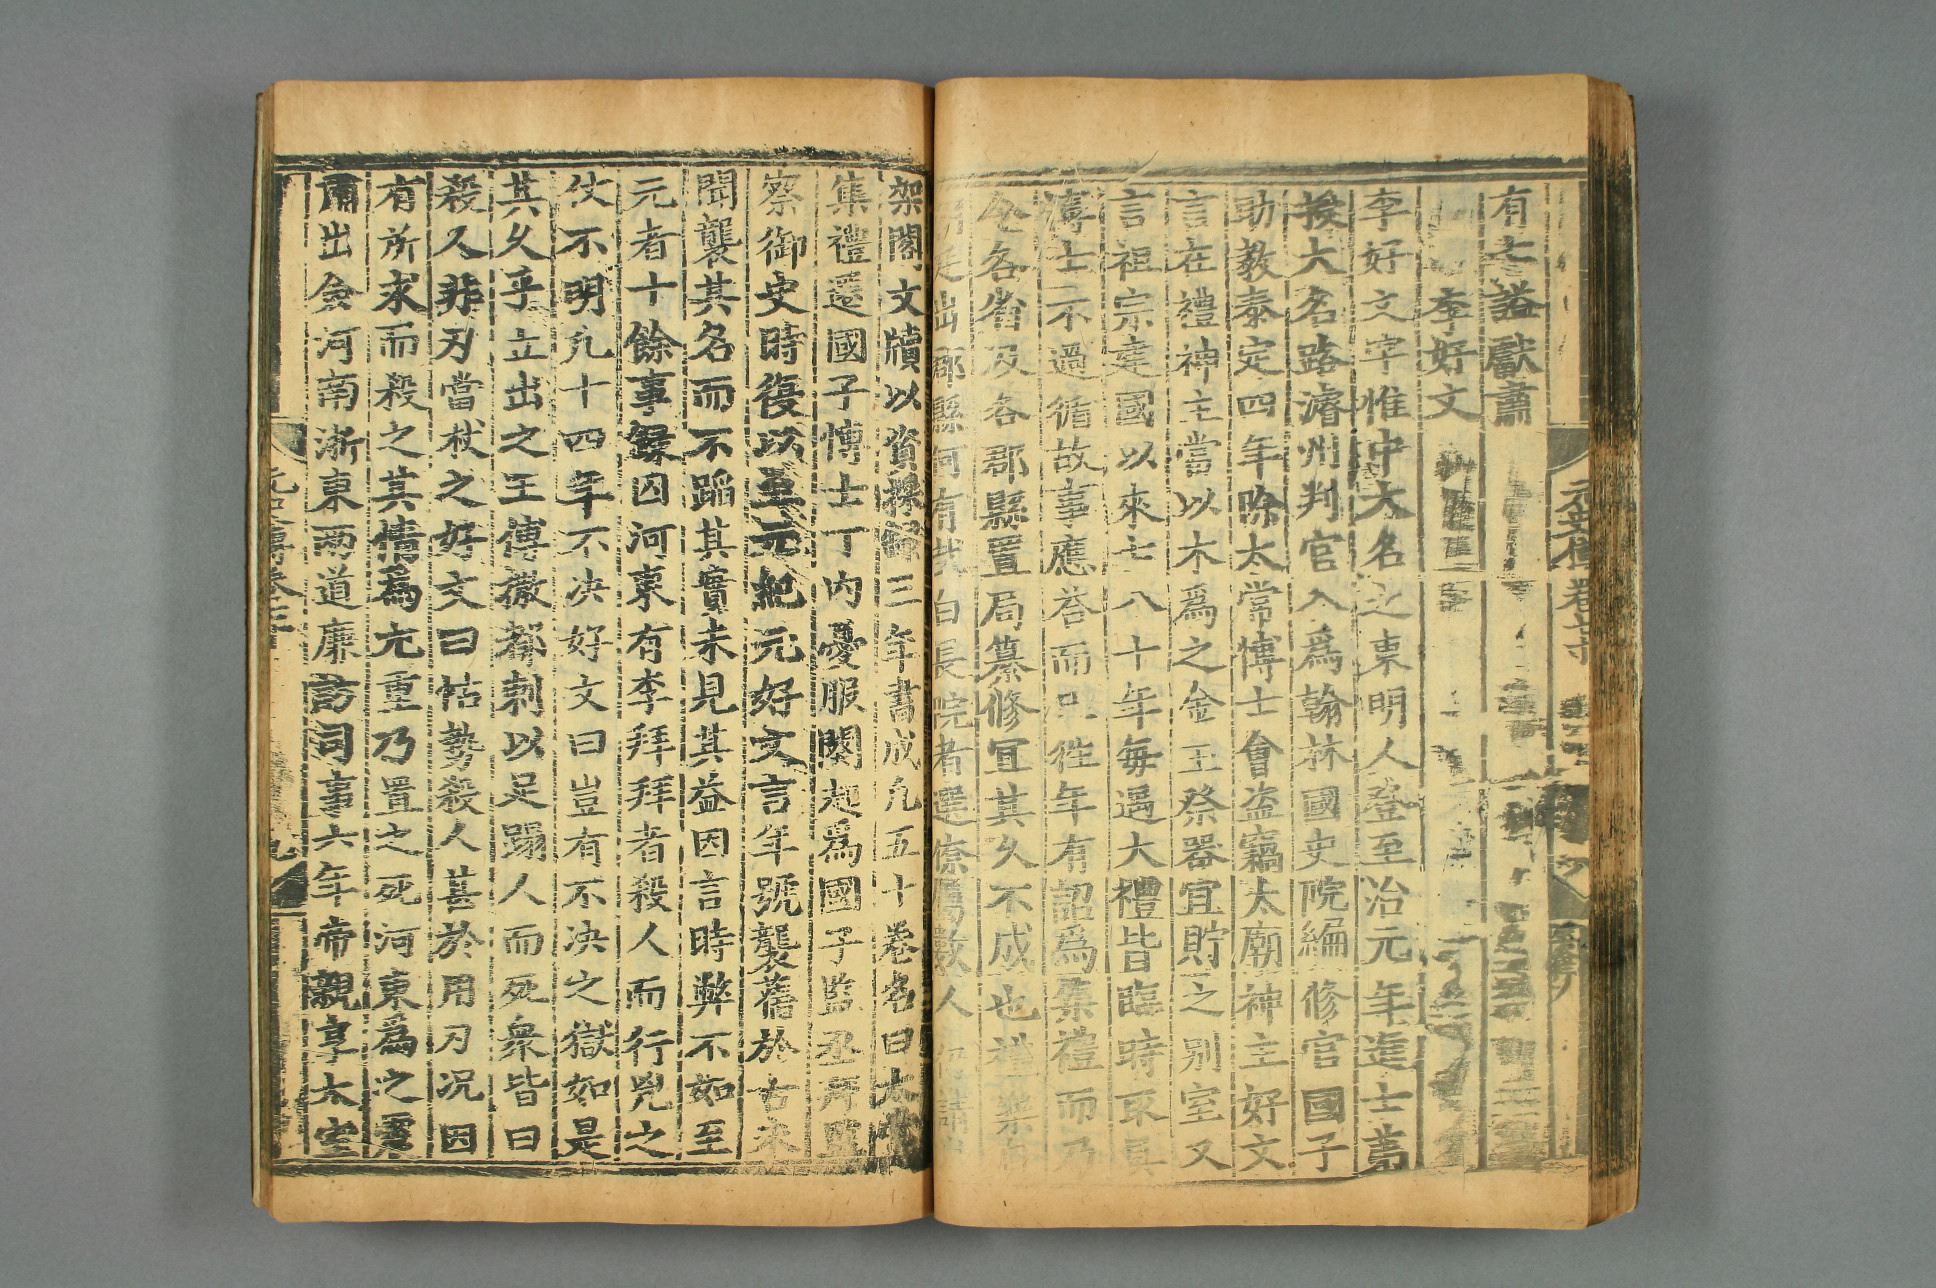 元史傳卷七十
有文謚獻肅
李好文
李好文字惟中大名之東明人登至治元年進士第
授大名路濬州判官入爲翰林國史院編修官國子
助教泰定四年除太常博士會盗竊太廟神主好文
言在禮神主當以木爲之金玉祭器宜貯之别室又
言祖宗建國以來七八十年每遇大禮皆臨時取具
博士不過循故事應荅而已往年有詔爲集禮而乃
令各省及各郡縣置局纂修宜其久不成也禮樂自
朝廷出郡縣何有哉白長院者選僚屬數人
架閣文牘以資採録三年書成凢五十卷名曰太常
集禮還國子博士丁内憂服闋起爲國子監丞拜監
察御史時復以至元紀元好文言年號襲舊於古未
聞襲其名而不蹈其實未見其益因言時弊不如至
元者十餘事録囚河東有李拜拜者殺人而行兇之
仗不明凢十四年不决好文曰豈有不决之獄如是
其久乎立出之王傅撒都剌以足蹋人而死衆皆曰
殺人非刃當杖之好文曰怙勢殺人甚於用刃况因
有所求而殺之其情爲尤重乃置之死河東爲之震
肅出僉河南浙東兩道廉訪司事六年帝親享太室